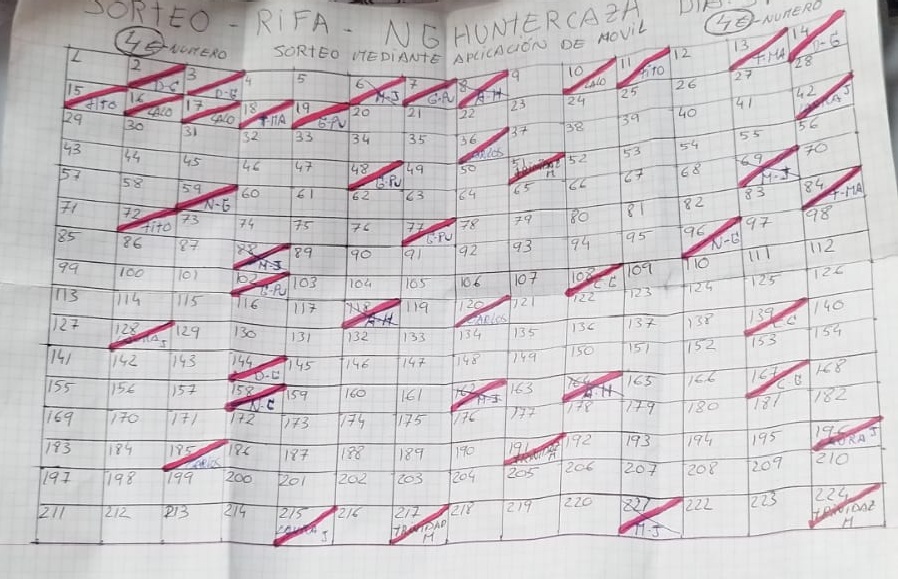 SORTEO - RIFA - NG HUNTERCAZA DIA
4€-NUMERO SORTEO MEDIANTE APLICACIÓN DE MOVIL 4€-NUMERO
1 2 D-G 3 D-G 4 5 6 M-J 7 G-PU 8 A-H 9 10 LALO 11 TITO 12 13 T-MA 14 D-G
15 TITO 16 LALO 17 LALO 18 T-MA 19 G-PU 20 21 22 23 24 25 26 27 28
29 30 31 32 33 34 35 36 CARLOS 37 38 39 40 41 42 LAURA J
43 44 45 46 47 48 G-PU 49 50 51 TRINIDAD M 52 53 54 55 56
57 58 59 N-G 60 61 62 63 64 65 66 67 68 69 M-J 70
71 72 TITO 73 74 75 76 77 G-PU 78 79 80 81 82 83 84 T-MA
85 86 87 88 M-J 89 90 91 92 93 94 95 96 N-G 97 98
99 100 101 102 G-PU 103 104 105 106 107 108 C-G 109 110 111 112
113 114 115 116 117 118 A-H 119 120 CARLOS 121 122 123 124 125 126
127 128 LAURA J 129 130 131 132 133 134 135 136 137 138 139 C-G 140
141 142 143 144 D-G 145 146 147 148 149 150 151 152 153 154
155 156 157 158 N-G 159 160 161 162 M-J 163 164 A-H 165 166 167 C-G 168
169 170 171 172 173 174 175 176 177 178 179 180 181 182
183 184 185 CARLOS 186 187 188 189 190 191 TRINIDAD M 192 193 194 195 196 LAURA J
197 198 199 200 201 202 203 204 205 206 207 208 209 210
211 212 213 214 215 LAURA J 216 217 TRINIDAD M 218 219 220 221 M-J 222 223 224 TRINIDAD M